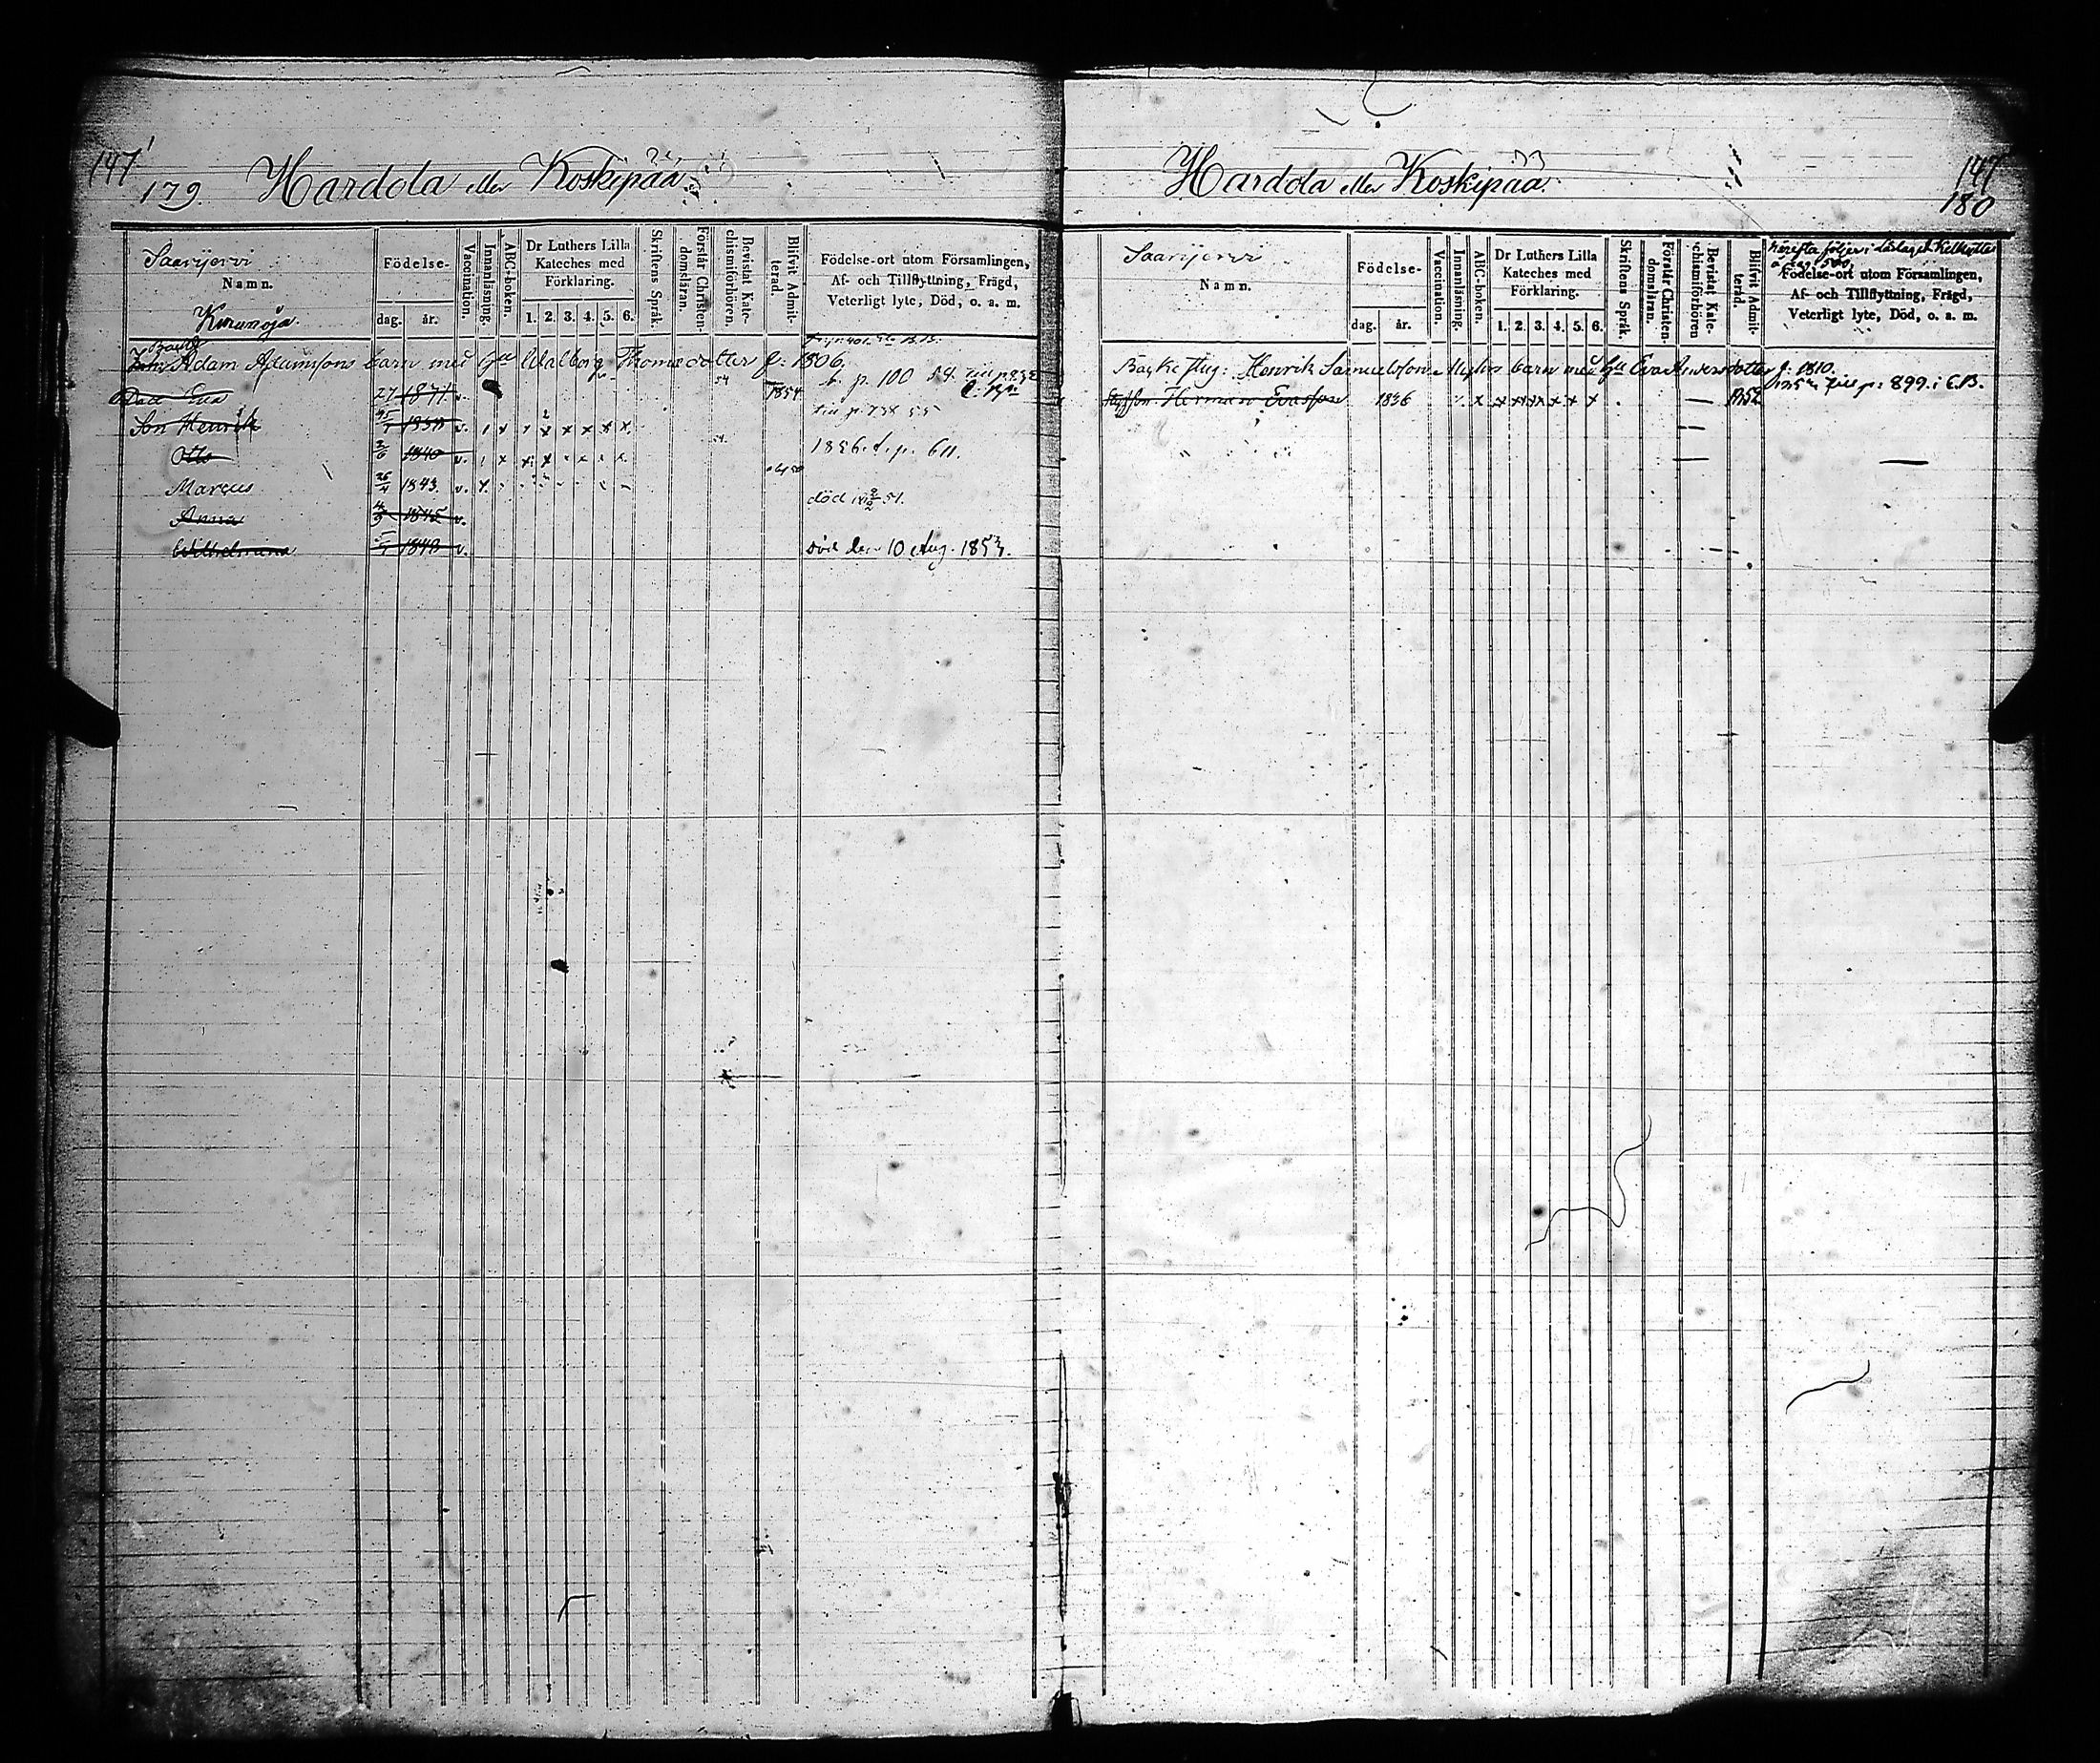 147
179. Hardola eller Koskipää
Saarijervi
Namn.
Födelse-
dag. år.
Vaccination.
Innanläsning.
ABC-boken.
Dr Luthers Lilla
Kateches med
Förklaring.
1. 2. 3. 4. 5. 6.
Skriftens Språk.
Förstår Christen-
domsläran.
Bevistat Kate-
chismiförhören.
Blifvit Admit-
terad.
Födelse-ort utom Församlingen,
Af- och Tillflyttning, Frägd,
Veterligt lyte, Död, o. a. m.
Adam Adamssons barn med Walborg Thomædotter f. 1806.
Eva 27 v. 1854 p. 100
Son Henrik v.
Otto 2/6 1840 v. p. 611.
Marcus 26/4 1843. v.
Anna 1845 v. död 51.
Wilhelmina v. död den 10 Aug. 1853.
Hardola eller Koskipää.
147
180
Saarijervi
Namn.
Födelse-
dag. år.
Vaccination.
Innanläsning.
ABC-boken.
Dr Luthers Lilla
Kateches med
Förklaring.
1. 2. 3. 4. 5. 6.
Skriftens Språk.
Förstår Christen-
domsläran.
Bevistat Kate-
chismiförhören
Blifvit Admit-
terad.
Födelse-ort utom Församlingen,
Af- och Tillflyttning, Frägd,
Veterligt lyte, Död, o. a. m.
Henrik Samuelssons barn med Eva f. 1810.
Herman Evasson 1836 1852 p: 899. i C.B.